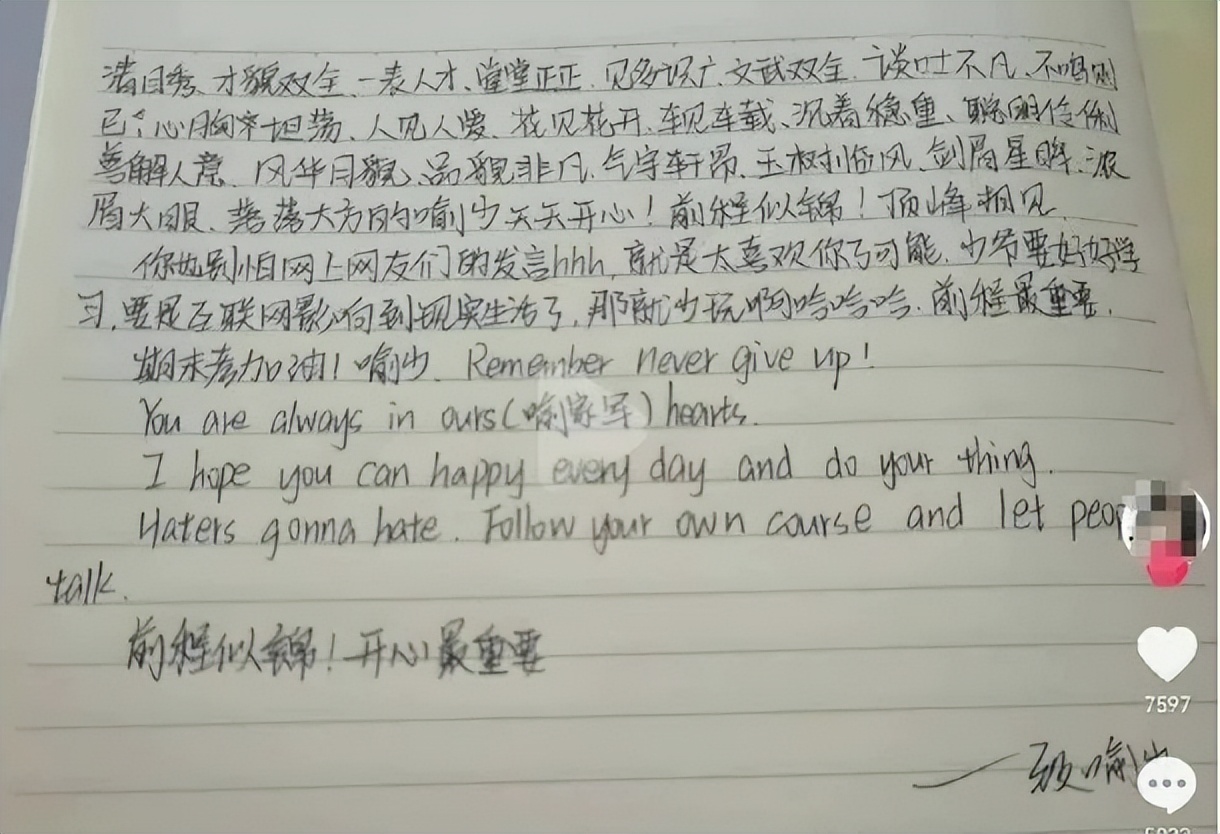 清目秀、才貌双全、一表人才、堂堂正正、见多识广、文武双全、谈吐不凡、不鸣则
已、心胸平坦荡、人见人爱、花见花开、车见车载、沉着稳重、聪明伶俐
善解人意、风华月貌、品貌非凡、气宇轩昂、玉树临风、剑眉星眸、浓
眉大眼、落落大方的喻少天天开心！前程似锦！顶峰相见
你也别怕网上网友们的发言hhh，就是太喜欢你了可能，少爷要好好学
习，要是互联网影响到现实生活了，那就少玩啊哈哈哈，前程最重要，
期末考加油！喻少．Remember never give up！
You are always in ours（喻家军）hearts.
I hope you can happy every day and do your thing.
Haters gonna hate. Follow your own course and let
talk.
前程似锦！开心最重要
——致喻少
7597